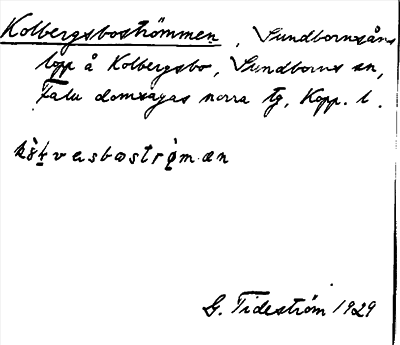 Kolbergsboströmmen, Sundbornsåns
lopp å Kolbergsbo, Sundborns sn,
Falu domsagas norra tg, Kopp. l.
G. Tideström 1929